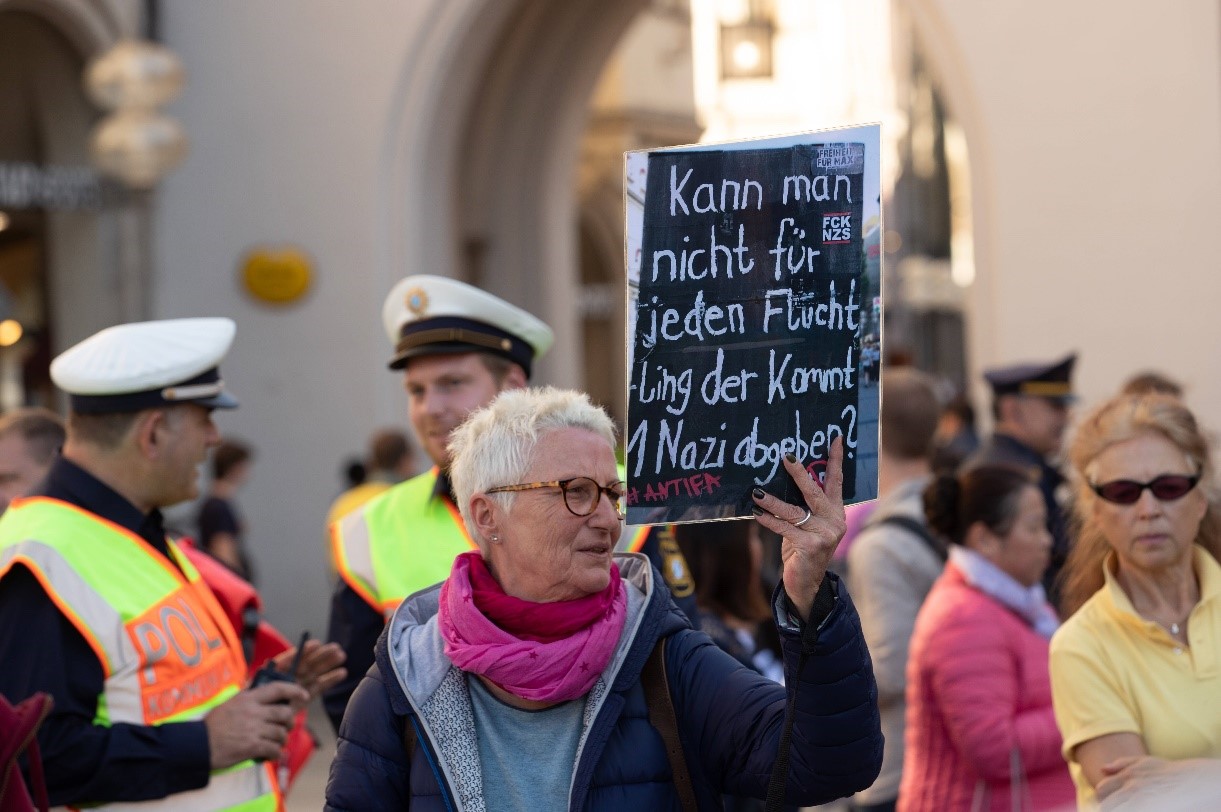 FREIHEIT
FÜR MAX
Kann man
FCK
NZS
nicht für
jeden Flücht
-ling der Kommt
1 Nazi abgeben?
#ANTIFA
POL